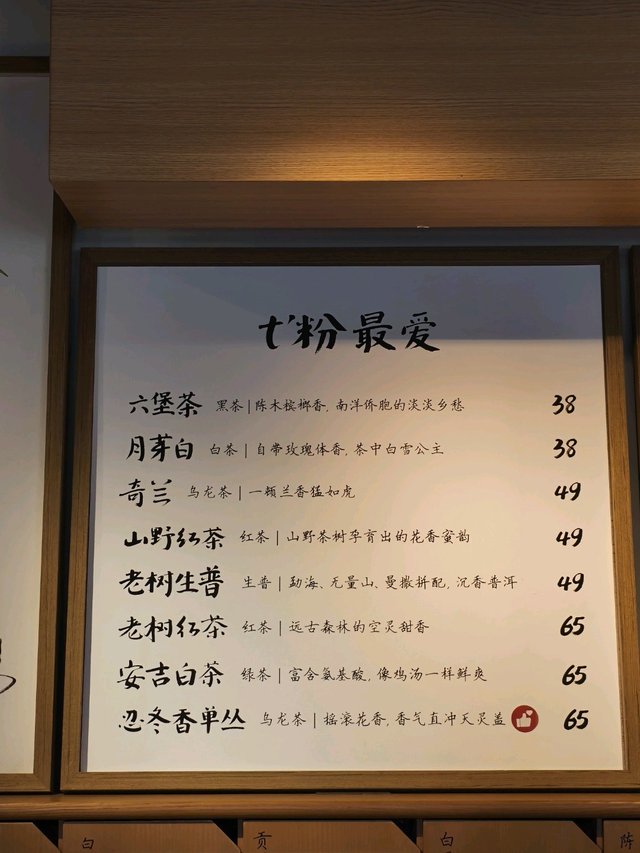 t'粉最爱
六堡茶 黑茶|陈木槟榔香, 南洋侨胞的淡淡乡愁 38
月芽白 白茶|自带玫瑰体香, 茶中白雪公主 38
奇兰 乌龙茶|一顿兰香猛如虎 49
山野红茶 红茶|山野茶树孕育出的花香蜜韵 49
老树生普 生普|勐海、无量山、曼撒拼配, 沉香普洱 49
老树红茶 红茶|远古森林的空灵甜香 65
安吉白茶 绿茶|富含氨基酸, 像鸡汤一样鲜爽 65
忍冬香单丛 乌龙茶|摇滚花香, 香气直冲天灵盖 65
白
贡
白
陈